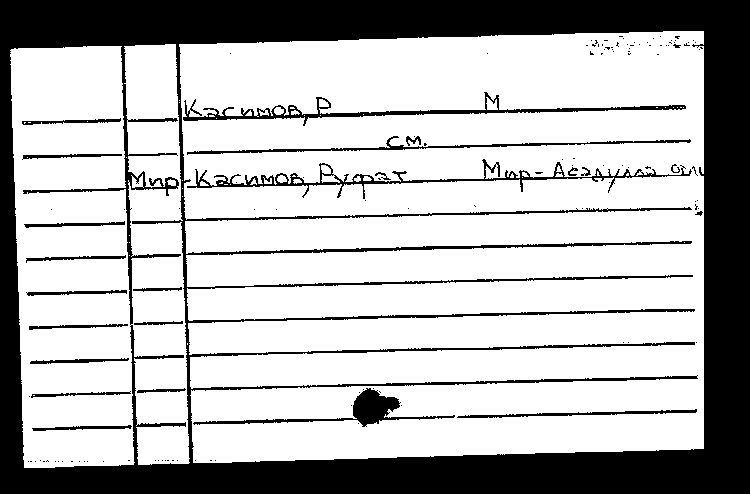 Касимов, Р М
см.
Мир-Касимов, Руфат Мир-Асадулла оглы